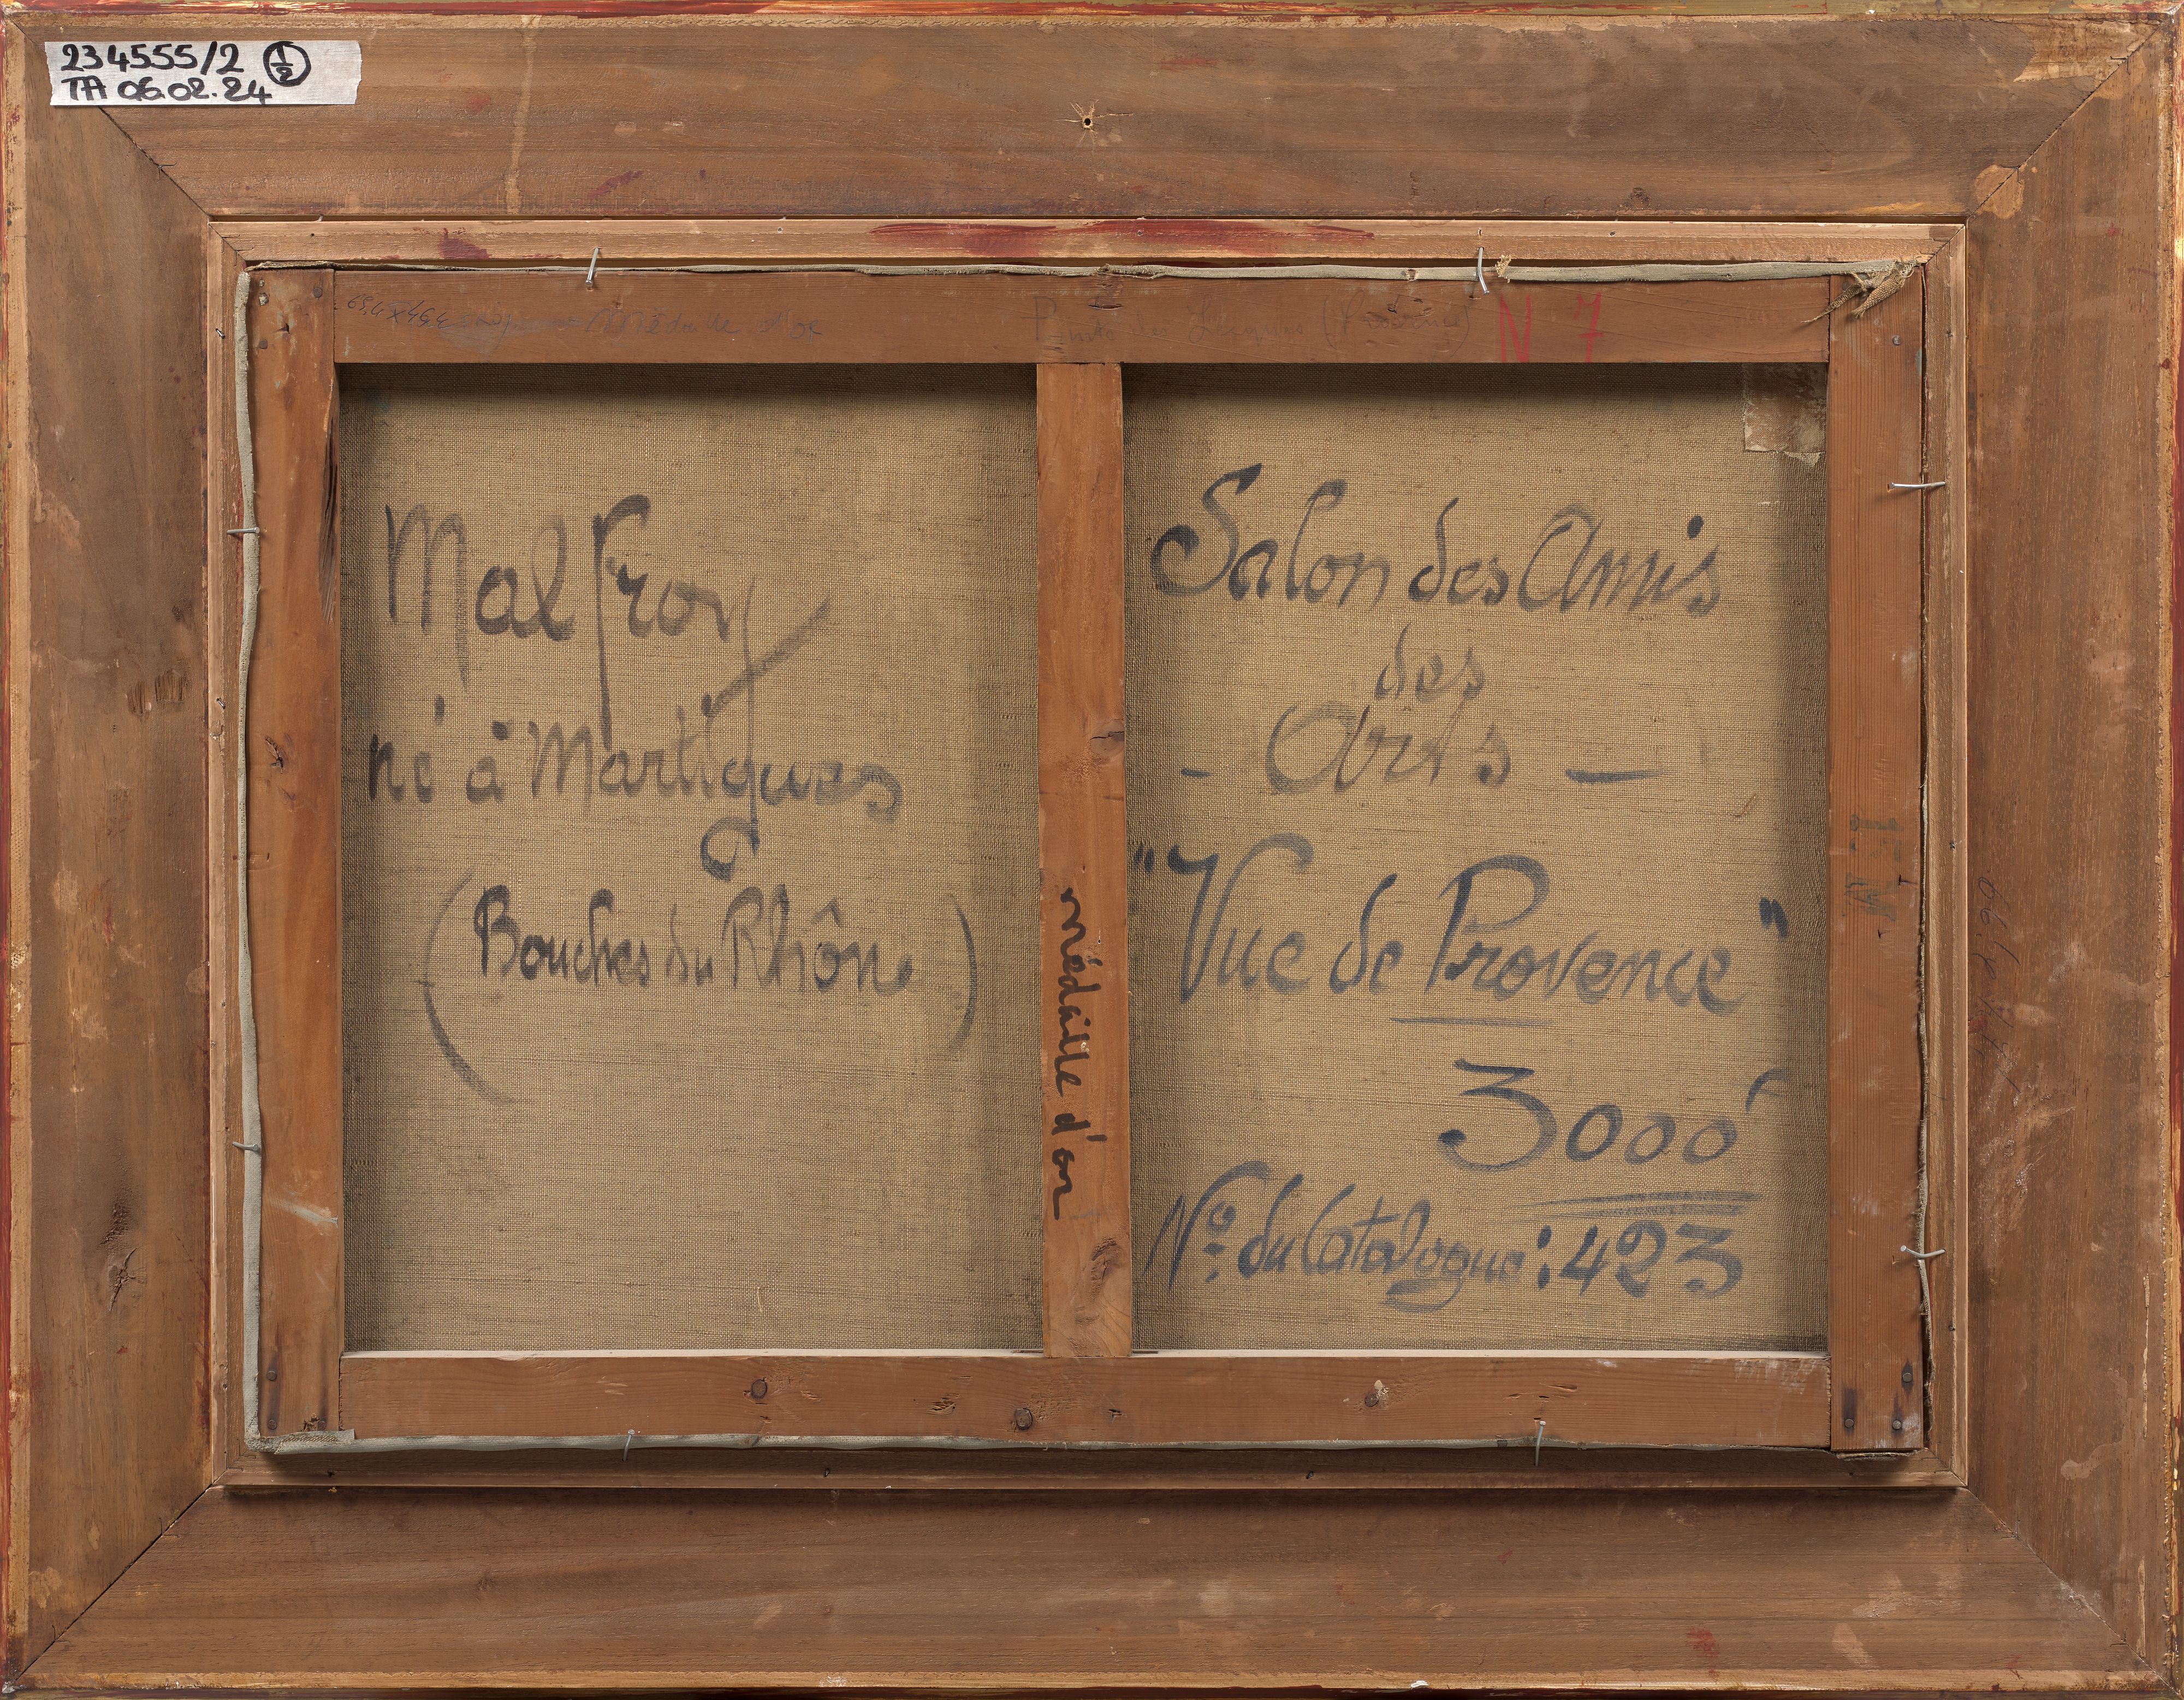 234555/2 1/2
TA 06.02.24
Médaille d'or
(Provence) N 7
Malfroy
né à Martigues
(Bouches du Rhône)
médaille d'or
Salon des Amis
des
- Arts -
"Vue de Provence"
3000f
No. du Catalogue : 423